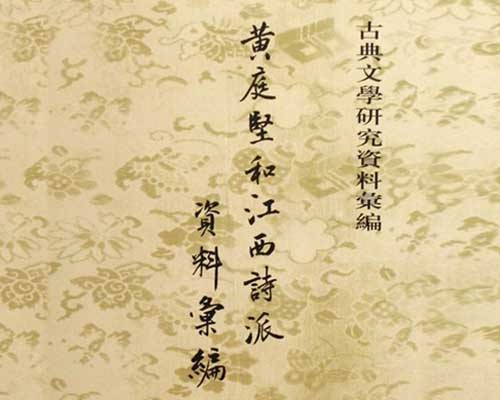 古典文學研究資料彙編
黃庭堅和江西詩派
資料彙編